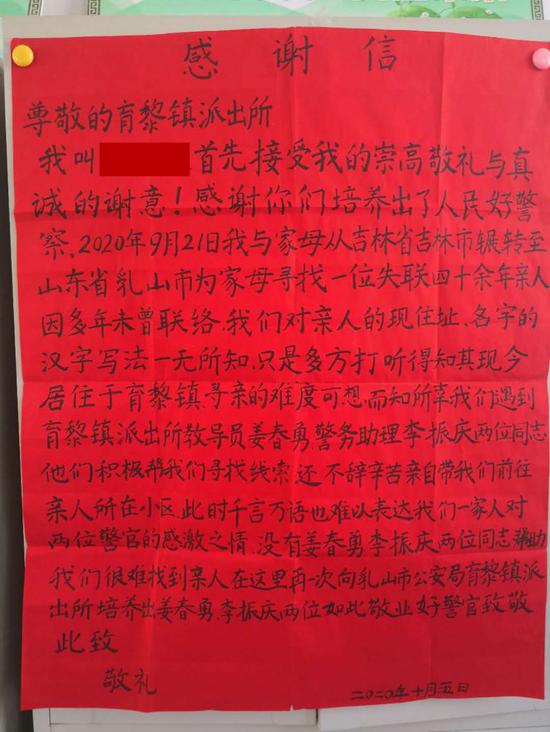 感谢信
尊敬的育黎镇派出所
我叫 首先接受我的崇高敬礼与真
诚的谢意！感谢你们培养出了人民好警
察.2020年9月21日我与家母从吉林省吉林市辗转至
山东省乳山市为家母寻找一位失联四十余年亲人
因多年未曾联络.我们对亲人的现住址、名字的
汉字写法一无所知.只是多方打听得知其现今
居住于育黎镇.寻亲的难度可想而知所幸我们遇到
育黎镇派出所教导员姜春勇警务助理李振庆两位同志
他们积极帮我们寻找线索还不辞辛苦亲自带我们前往
亲人所在小区此时千言万语也难以表达我们一家人对
两位警官的感激之情.没有姜春勇李振庆两位同志帮助
我们很难找到亲人在这里再一次向乳山市公安局育黎镇派
出所培养出姜春勇.李振庆两位如此敬业好警官致敬
此致
敬礼
二〇二〇年十月五日